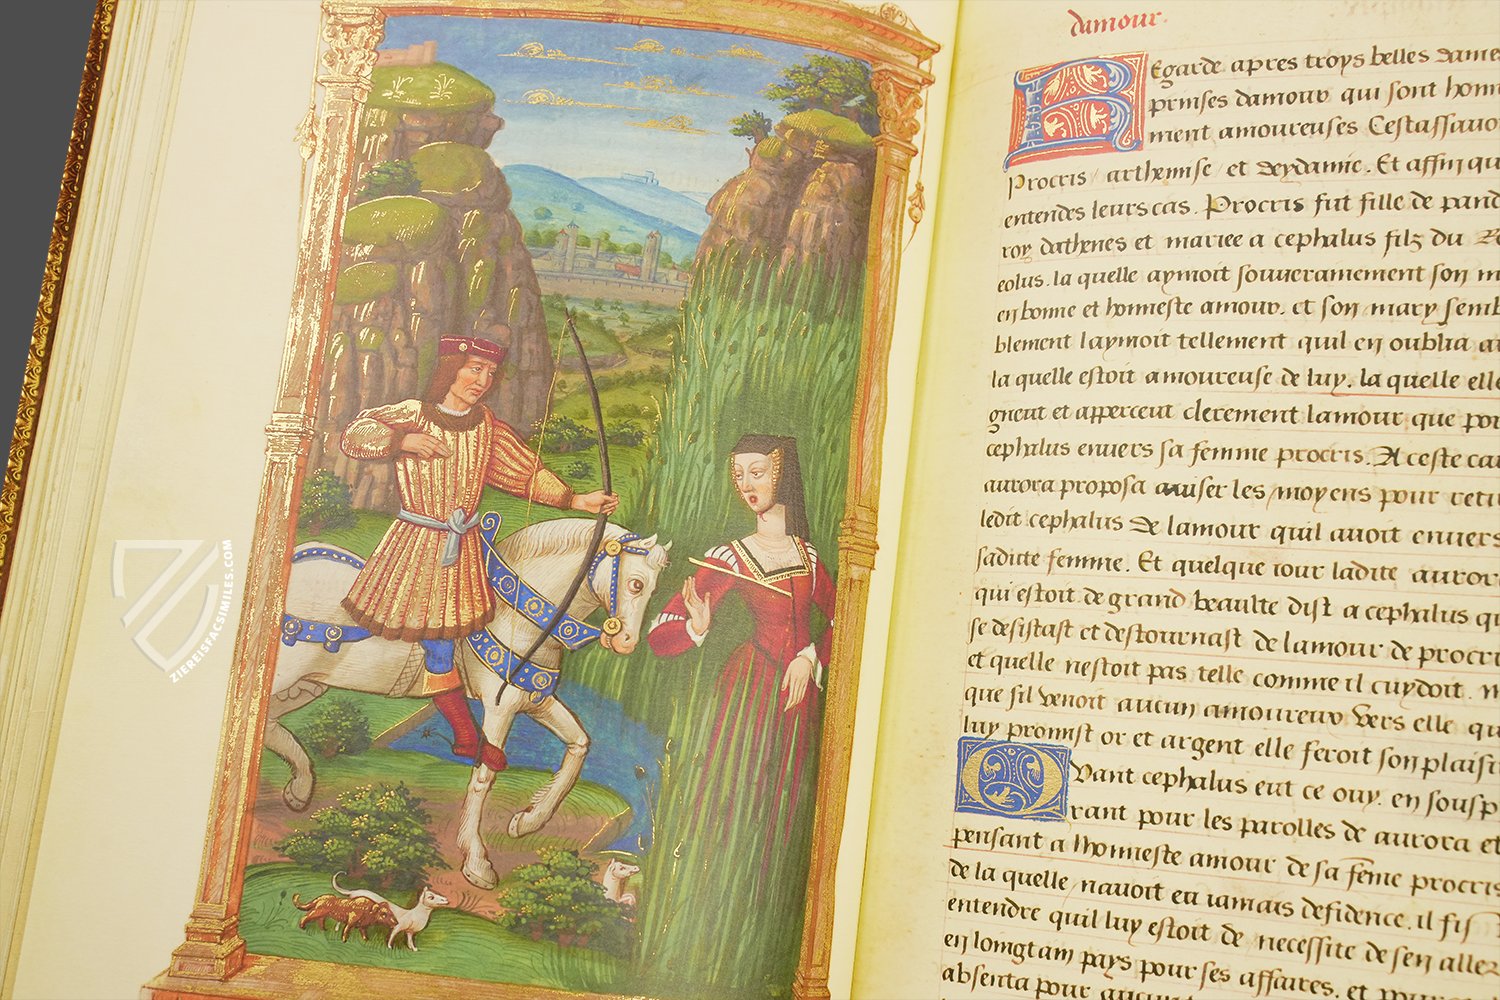 damour.
Egarde apres troys belles dames
prinses damour qui sont honn
ment amoureuses Cestassauo
Procris / arthemise / et deydamie. Et affin qu
entendes leurs cas. Procris fut fille de pand
roy dathenes et mariee a cephalus filz du R
eolus. la quelle aymoit souuerainement son m
en bonne et honneste amour. et son mary semb
blement laymoit tellement quil en oublia au
la quelle estoit amoureuse de luy. la quelle elle
gneut et apperceut clerement lamour que por
cephalus enuers sa femme procris. A ceste cau
aurora proposa auiser les moyens pour retir
ledit cephalus de lamour quil auoit enuers
saditte femme. Et quelque iour ladite aurora
qui estoit de grand beaulte dist a cephalus qu
se desistast et destournast de lamour de procri
et quelle nestoit pas telle comme il cuydoit. m
que sil venoit aucun amoureux vers elle qu
luy promist or et argent elle feroit son plaisi
Quant cephalus eut ce ouy. en sousp
rant pour les parolles de aurora et
pensant a lhonneste amour de sa feme procris
de la quelle / nauoit eu iamais defidence. il fis
entendre quil luy estoit de necessite de sen aller
en loingtam pays pour ses affaires. et pour
absenta pour aucun
ZIEREISFACSIMILES.COM